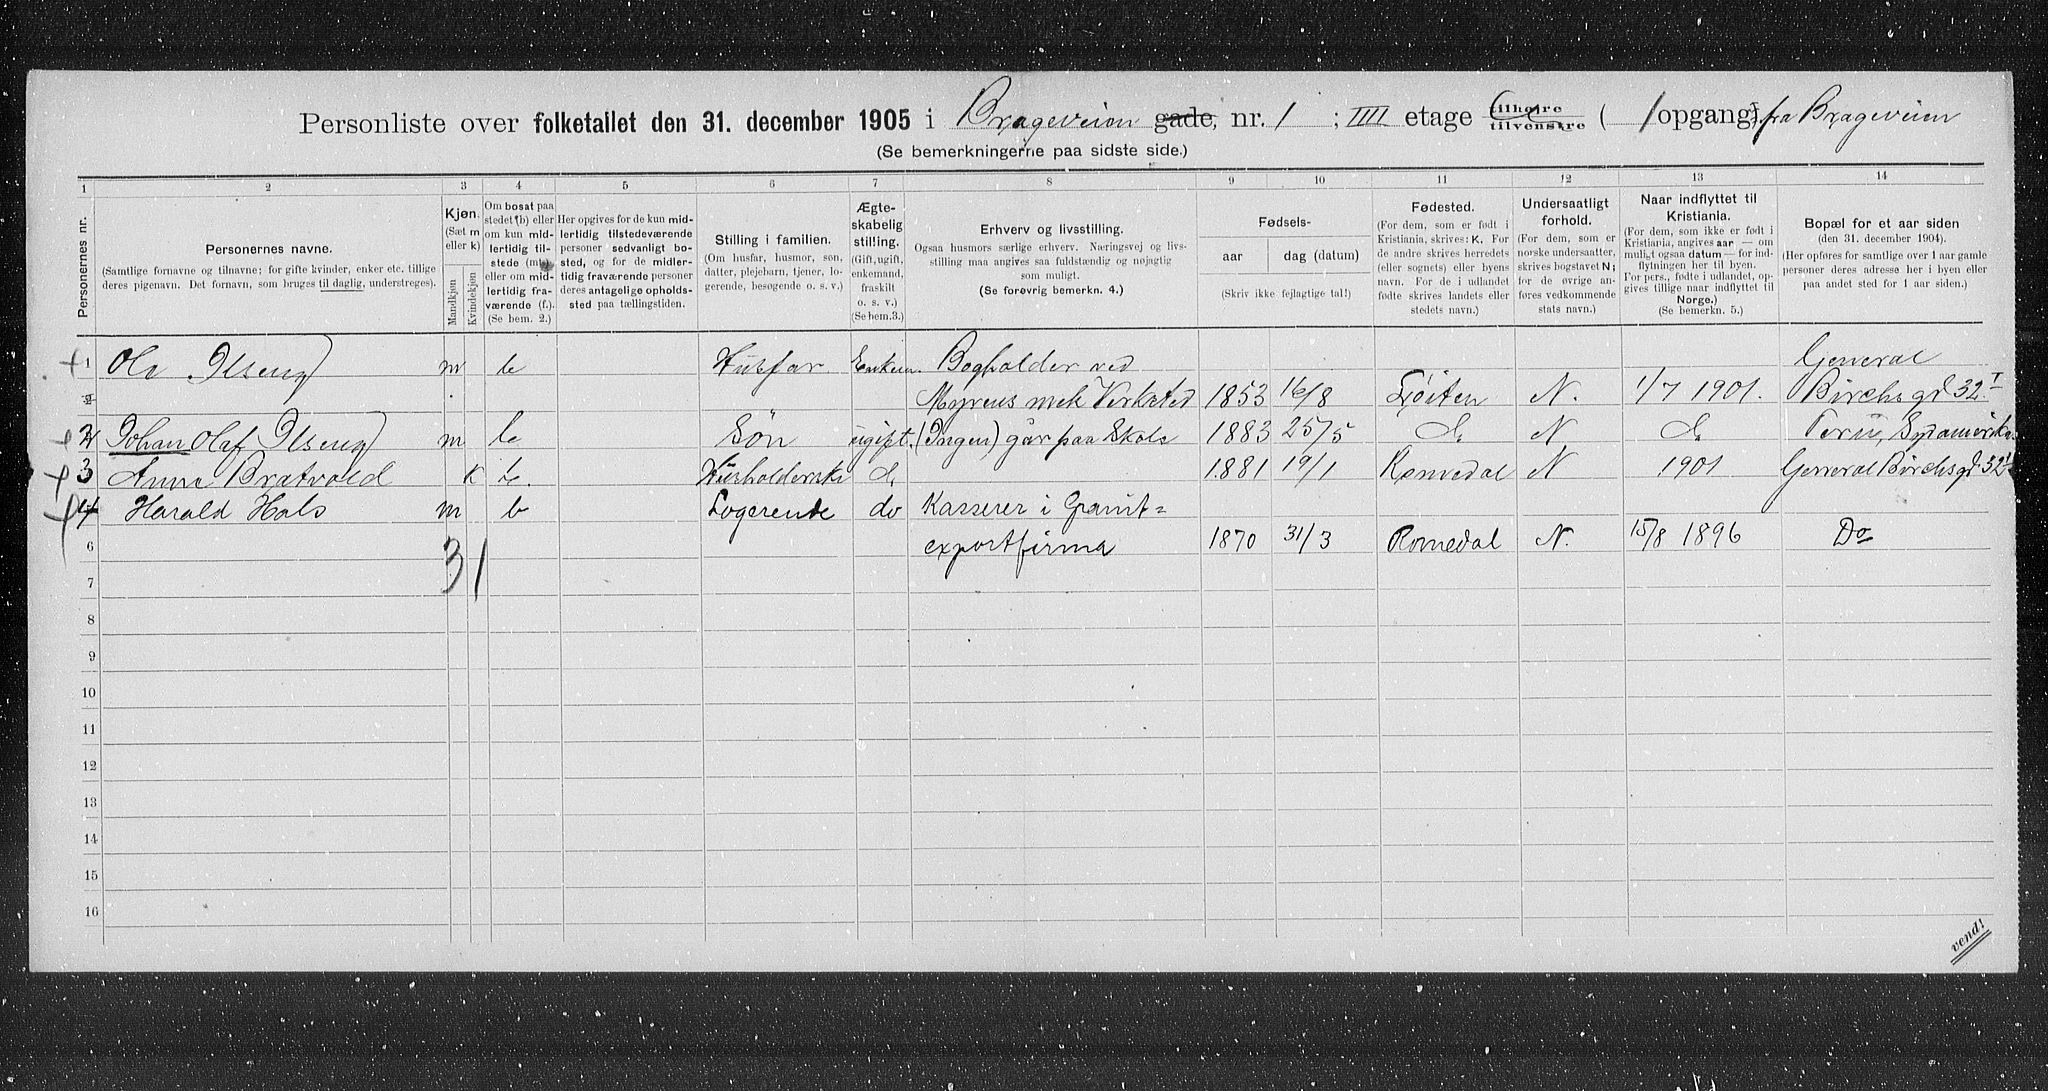 Personliste over folketallet den 31. december 1905 i Brageveien gade, nr. 1 ; IIII etage tilhøire tilvenstre ( 1 opgang) fra Brageveien
(Se bemerkningerne paa sidste side.)
1 2 3 4 5 6 7 8 9 10 11 12 13 14
Personernes nr.
Personernes navne.
(Samtlige fornavne og tilnavne; for gifte kvinder, enker etc. tillige
deres pigenavn. Det fornavn, som bruges til daglig, understreges).
Kjøn.
(Sæt m
eller k)
Mandkjøn
Kvindekjøn
Om bosat paa
stedet (b) eller
om kun mid-
lertidig til-
stede (mt)
eller om mid-
lertidig fra-
værende (f.)
(Se bem. 2.)
Her opgives for de kun mid-
lertidig tilstedeværende
personer sedvanligt bo-
sted, og for de midler-
tidig fraværende personer
deres antagelige opholds-
sted paa tællingstiden.
Stilling i familien.
(Om husfar, husmor, søn,
datter, plejebarn, tjener, lo-
gerende, besøgende o. s. v.)
Ægte-
skabelig
stilling.
(Gift, ugift,
enkemand,
fraskilt
o. s. v.)
(Se bem.3.)
Erhverv og livsstilling.
Ogsaa husmors særlige erhverv. Næringsvej og livs-
stilling maa angives saa fuldstændig og nøjagtig
som muligt.
(Se forøvrig bemerkn. 4.)
Fødsels-
aar
dag (datum)
(Skriv ikke fejlagtige tal!)
Fødested.
(For dem, som er født i
Kristiania, skrives: K. For
de andre skrives herredets
(eller sognets) eller byens
navn. For de i udlandet
fødte skrives landets eller
stedets navn.)
Undersaatligt
forhold.
(For dem, som er
norske undersaatter,
skrives bogstavet N;
for de øvrige an-
føres vedkommende
stats navn.)
Naar indflyttet til
Kristiania.
(For dem, som ikke er født i
Kristiania, angives aar — om
muligt ogsaa datum — for ind-
flytningen her til byen.
For pers., fødte i udlandet, op-
gives tillige naar indflyttet til
Norge.)
(Se bemerkn. 5.)
Bopæl for et aar siden
(den 31. december 1904).
(Her opføres for samtlige over 1 aar gamle
personer deres adresse her i byen eller
paa andet sted for 1 aar siden.)
1 Ole Ilseng m b Husfar Enkem. Bogholder ved General
2 Myrens mek Verksted 1853 16/8 Løiten N. 1/7 1901. Birchsgd. 32 I
2 Johan Olaf Ilseng m b Søn ugift. (Ingen) går paa Skole 1883 25/5 d. N. d. Peru, Sydamerika
3 Anna Bratvold k b. Husholderske d. 1881 19/1 Romedal N 1901 General Birchsgd. 32 I
4 Harald Hals m b Logerende do Kasserer i Granit=
6 exportfirma 1870 31/3 Romedal N. 15/8 1896 Do
3 1
7
8
9
10
11
12
13
14
15
16
vend!